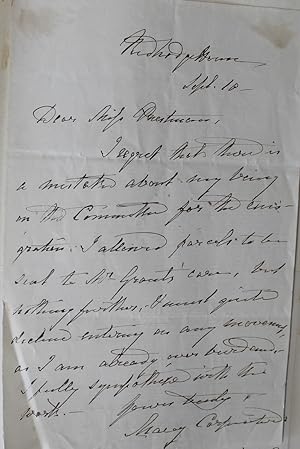 Red Lodge House
Sept. 10 -
Dear Miss Priestman,
I regret that there is
a mistake about my being
on the Committee for the emi-
gration. I allowed parcels to be
sent to Mr Grant's care, but
nothing further. I must quite
decline entering on any movement,
as I am already over burdened.
I fully sympathise with the
work. -
Yours truly
Mary Carpenter